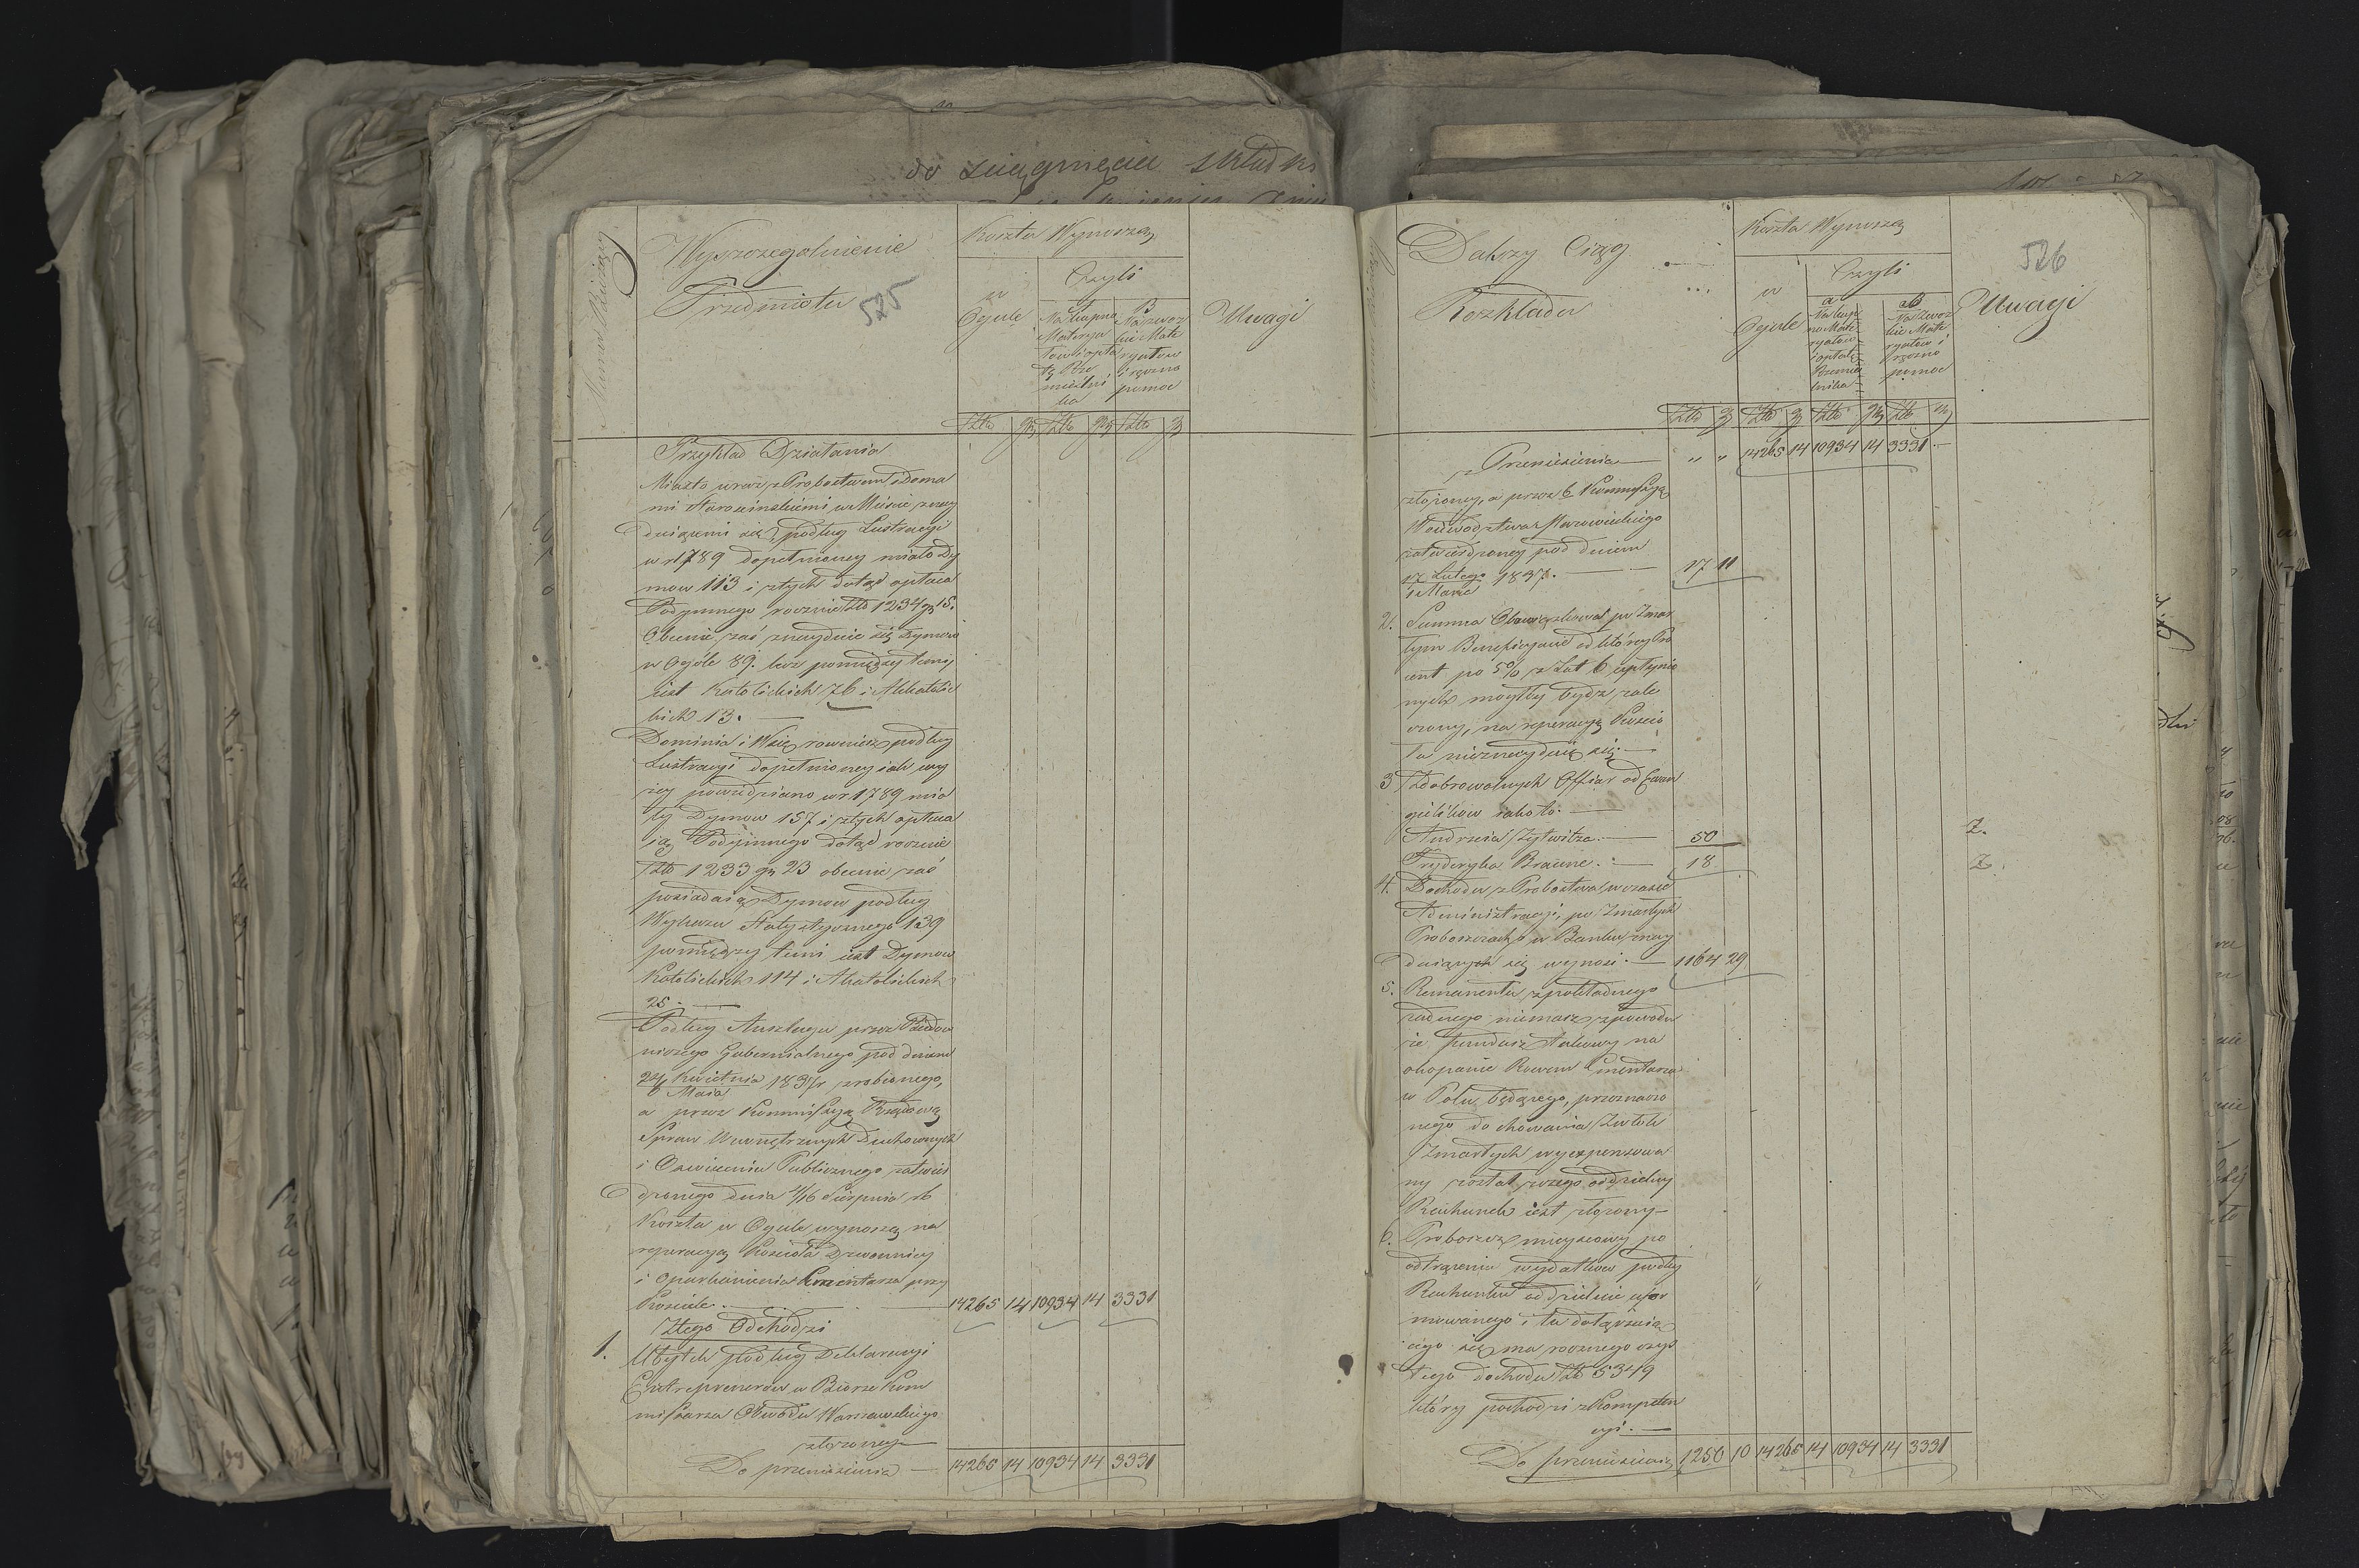 do sciągnięcia składki
Numer Bieżący
Wyszczegolnienie
Przedmiotu
525
Koszta Wynoszą
w
Ogule
Czyli
A
Na kupno
Materya
łow i opła
tę Rze
mieślni
ka
B
Na zwoz
kę Mate
ryałow
i ręczno
pomoc
Uwagi
Złto gr Złto gr Złto gr
Przykład Działania
Miasto wraz z Probostwem i Doma
mi Starocinskiemi w Mieście znay
duiącemi się, podług Lustracyi
w r. 1789 dopełnioney miało Dy
mow 113 i z tych dotąd opłaca
Podymnego rocznie Złto 1234 gr 15.
Obecnie zaś znayduie się Dymow
w Ogóle 89. lecz pomiędzy temi
iest Katolickich 76 i Akatolic
kich 13.
Dominia i Wsie rownież podług
Lustracyi dopełnioney iak wy
żey powiedziano w r. 1789 mia
ły Dymow 157 i z tych opłaca
ią Podymnego dotąd rocznie
Złto 1233 gr 23 obecnie zaś
posiadaią Dymow podług
Wykazu Statystycznego 139
pomiędzy temi iest Dymow
Katolickich 114 i Akatolickich
25.
Podług Anszlagu przez Budow
niczego Gubernialnego pod dniem
24 Kwietnia 1837 r zrobionego,
6 Maia
a przez Kommissyą Rządową
Spraw Wewnętrznych Duchownych
i Oswiecenia Publicznego zatwier
dzonego dnia 4/16 Sierpnia rb
Koszta w Ogule wynoszą na
reperacyą Kościoła Dzwonnicy
i oparkanienia Cmentarza przy
Kościele. 14265 14 10934 14 3331
Ztego Odchodzi
1. Ubytek podług Deklaracyi
Entreprenerow w Biorze Kom
missarza Obwodu Warszawskiego
złożoney
Do przeniesienia 14265 14 10934 14 3331
Dalszy Ciąg
Rozkładu
Koszta Wynoszą
w
Ogule
Czyli
a
Na kup
no Mate
ryałow
i opłatę
Rzemieś
lnika
B
Na zwoz
kę Mate
ryałow i
ręczno
pomoc
526
Uwagi
Złto gr Złto gr Złto gr Złto gr
z Przeniesienia „ „ 14265 14 10934 14 3331 —
złożoney, a przez b. Kommissyą
Woiewodztwa Mazowieckiego
zatwierdzoney pod dniem
17 Lutego 1837. 17 11
1 Marca
2. Summa Obowiązkowa po Zmar
łym Beneficyacie od którey Pro
cent po 5% z Lat 6 upłynio
nych mogłby bydz zali
czony, na reperacyą Koscio
ła nieznayduie się.
3 Zdobrowolnych Offiar od Ewan
gielikow iakoto.
Andrzeia Zytwitza. 50 Z.
Fryderyka Braune. 18 Z.
4. Dochodu z Probostwa w czasie
Administracyi, po Zmarłych
Proboszczach w Banku znay
duiących się wynosi. 1164 29
5. Remanentu z pokładnego
żadnego niemasz z powodu
że fundusz takowy na
okopanie Rowem Cmentarza
w Polu będącego, przeznaczo
nego do chowania Zwłok
Zmarłych wyexpensowa
ny został z czego oddzielny
Rachunek iest złożony
6. Proboszcz mieyscowy po
odtrąceniu wydatkow podług
Rachunku oddzielnie ufor
mowanego i tu dołączaią
cego się ma rocznego czys
tego dochodu Złt 5349
który pochodzi z Kompeten
cyi.
Do przeniesienia 1250 10 14265 14 10934 14 3331